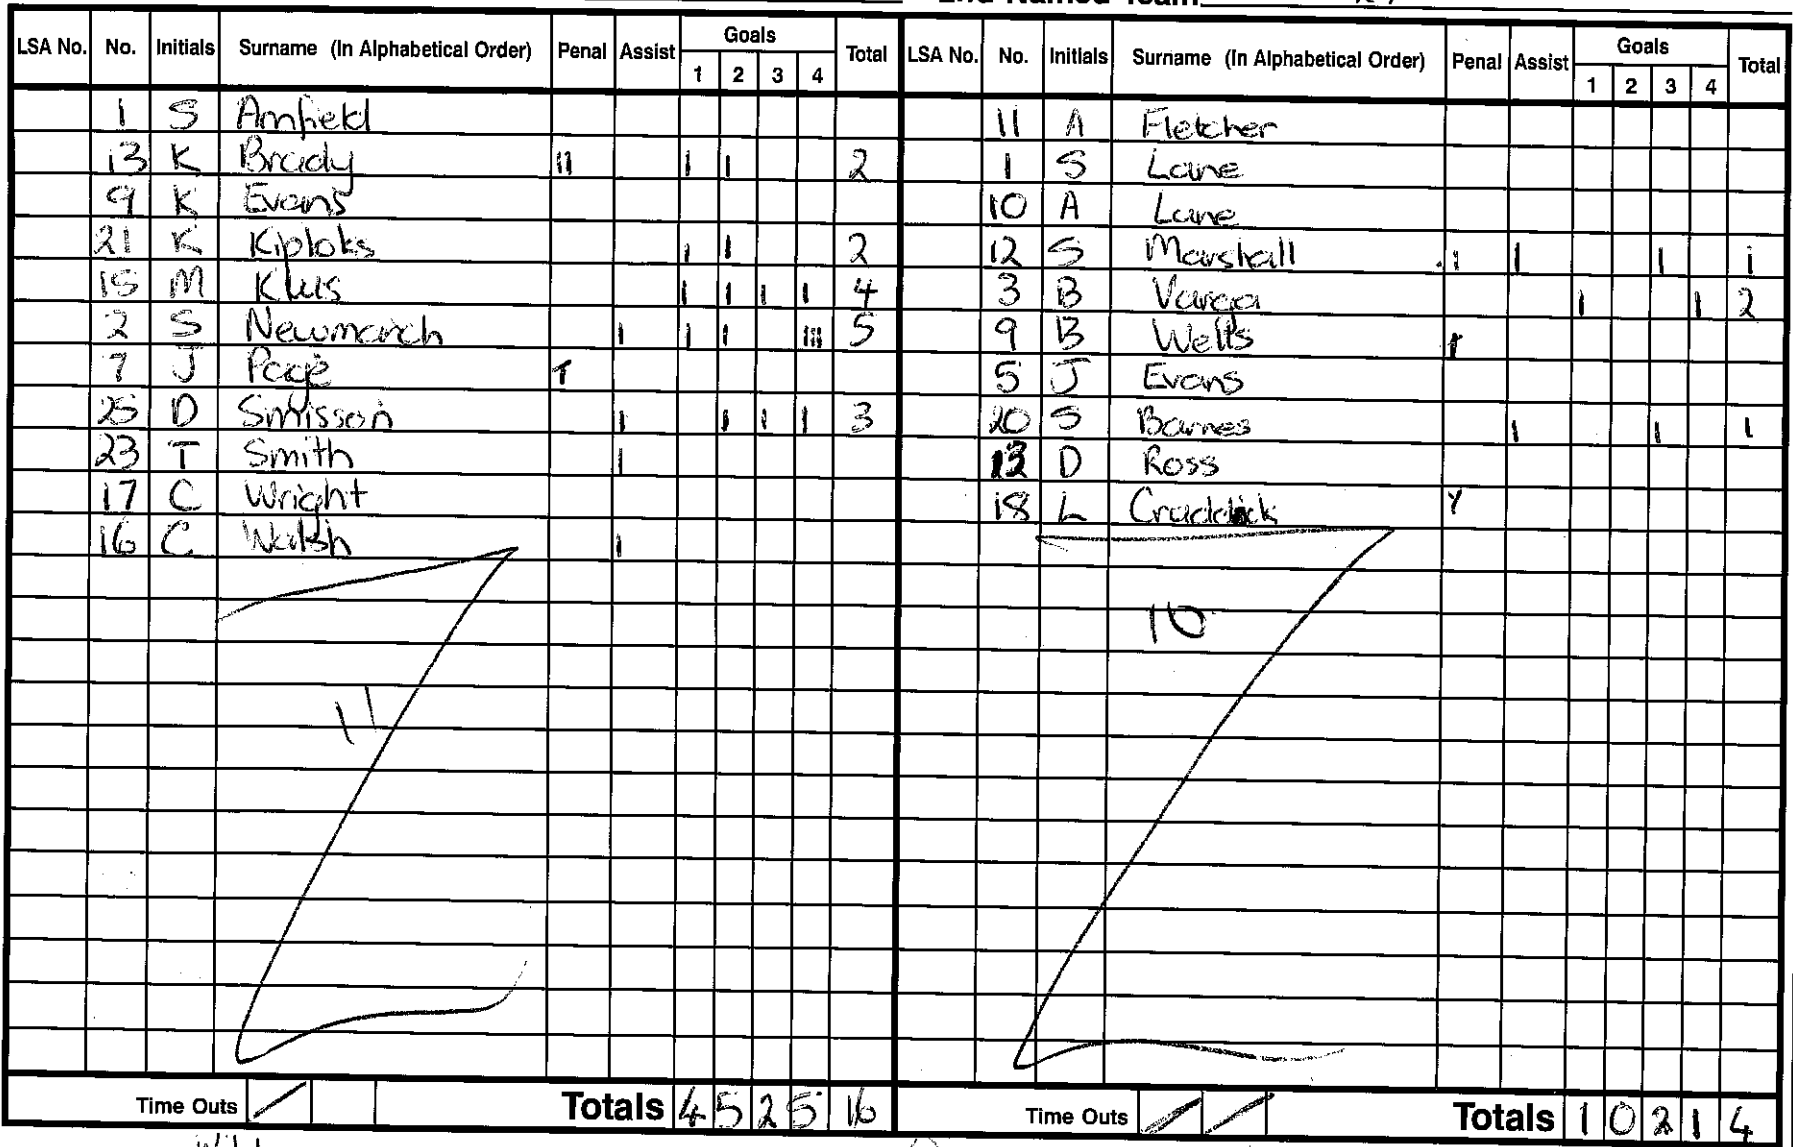 2nd Named Team
LSA No. No. Initials Surname (In Alphabetical Order) Penal Assist Goals 1 2 3 4 Total
1 S Amfield
13 K Brady II I I 2
9 K Evans
21 K Kiploks I I 2
15 M Klus I I I I 4
2 S Newmarch I I I III 5
7 J Page 1
25 D Smisson I I I I 3
23 T Smith I
17 C Wright
16 C Walsh I
11
Time Outs / Totals 4 5 2 5 16
LSA No. No. Initials Surname (In Alphabetical Order) Penal Assist Goals 1 2 3 4 Total
11 A Fletcher
1 S Lane
10 A Lane
12 S Marshall II I I 1
3 B Varga I I 2
9 B Wells I
5 J Evans
20 S Barnes I I 1
13 D Ross
18 L Craddick Y
10
Time Outs / / Totals 1 0 2 1 4